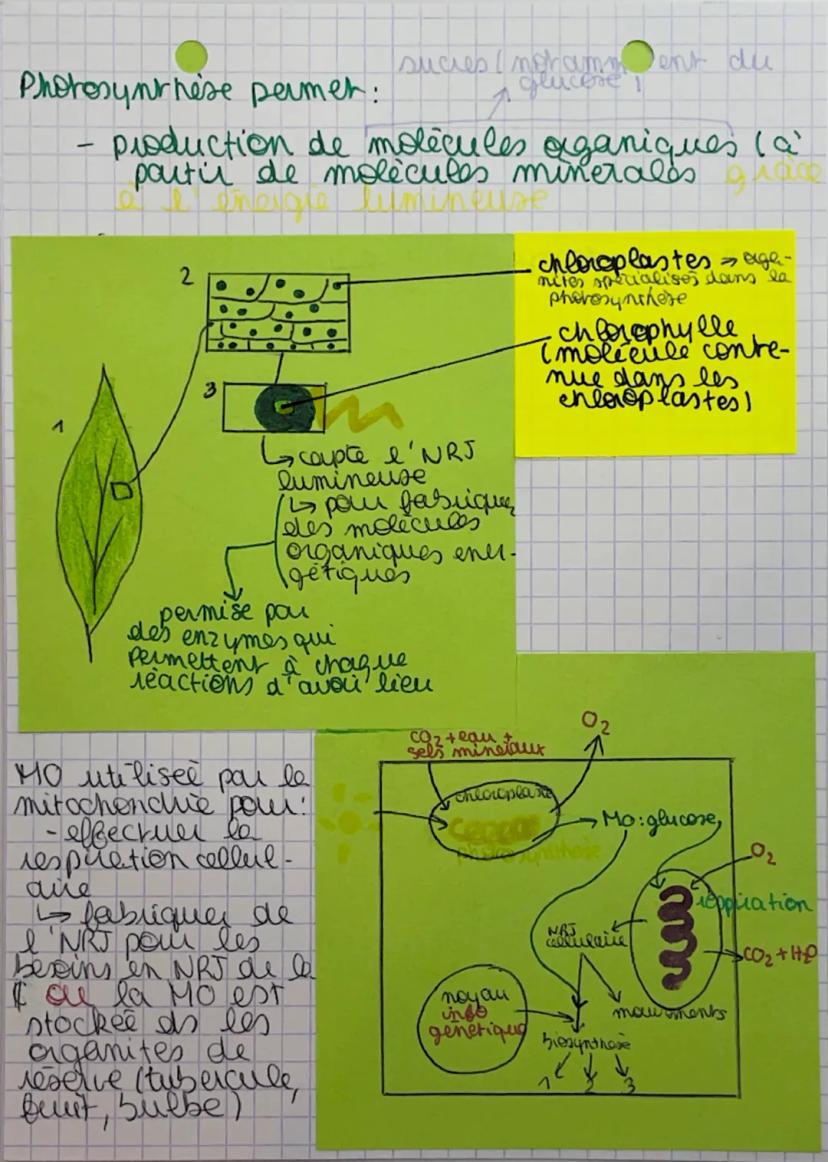 sucres (notamment du
glucose)
Photosynthèse permet :
- production de molécules organiques (à
partir de molécules minérales grâce
à l'énergie lumineuse
2
chloroplastes → orga-
nites spécialisés dans la
photosynthèse
chlorophylle
(molécule conte-
nue dans les
chloroplastes)
3
1
↳ capte l'NRJ
lumineuse
↳ pour fabriquer
des molécules
organiques éner-
gétiques
permise par
des enzymes qui
permettent à chaque
réactions d'avoir lieu
MO utilisée par la
mitochondrie pour :
- effectuer la
respiration cellul-
aire
↳ fabriquer de
l'NRJ pour les
besoins en NRJ de la
¢ ou la MO est
stockée ds les
organites de
réserve (tubercule,
fruit, bulbe)
CO2 + eau +
sels minéraux
O2
chloroplaste
photosynthèse
Mo : glucose
O2
respiration
NRJ
cellulaire
CO2 + H2O
noyau
info
génétique
mouvements
biosynthèse
1 2 3